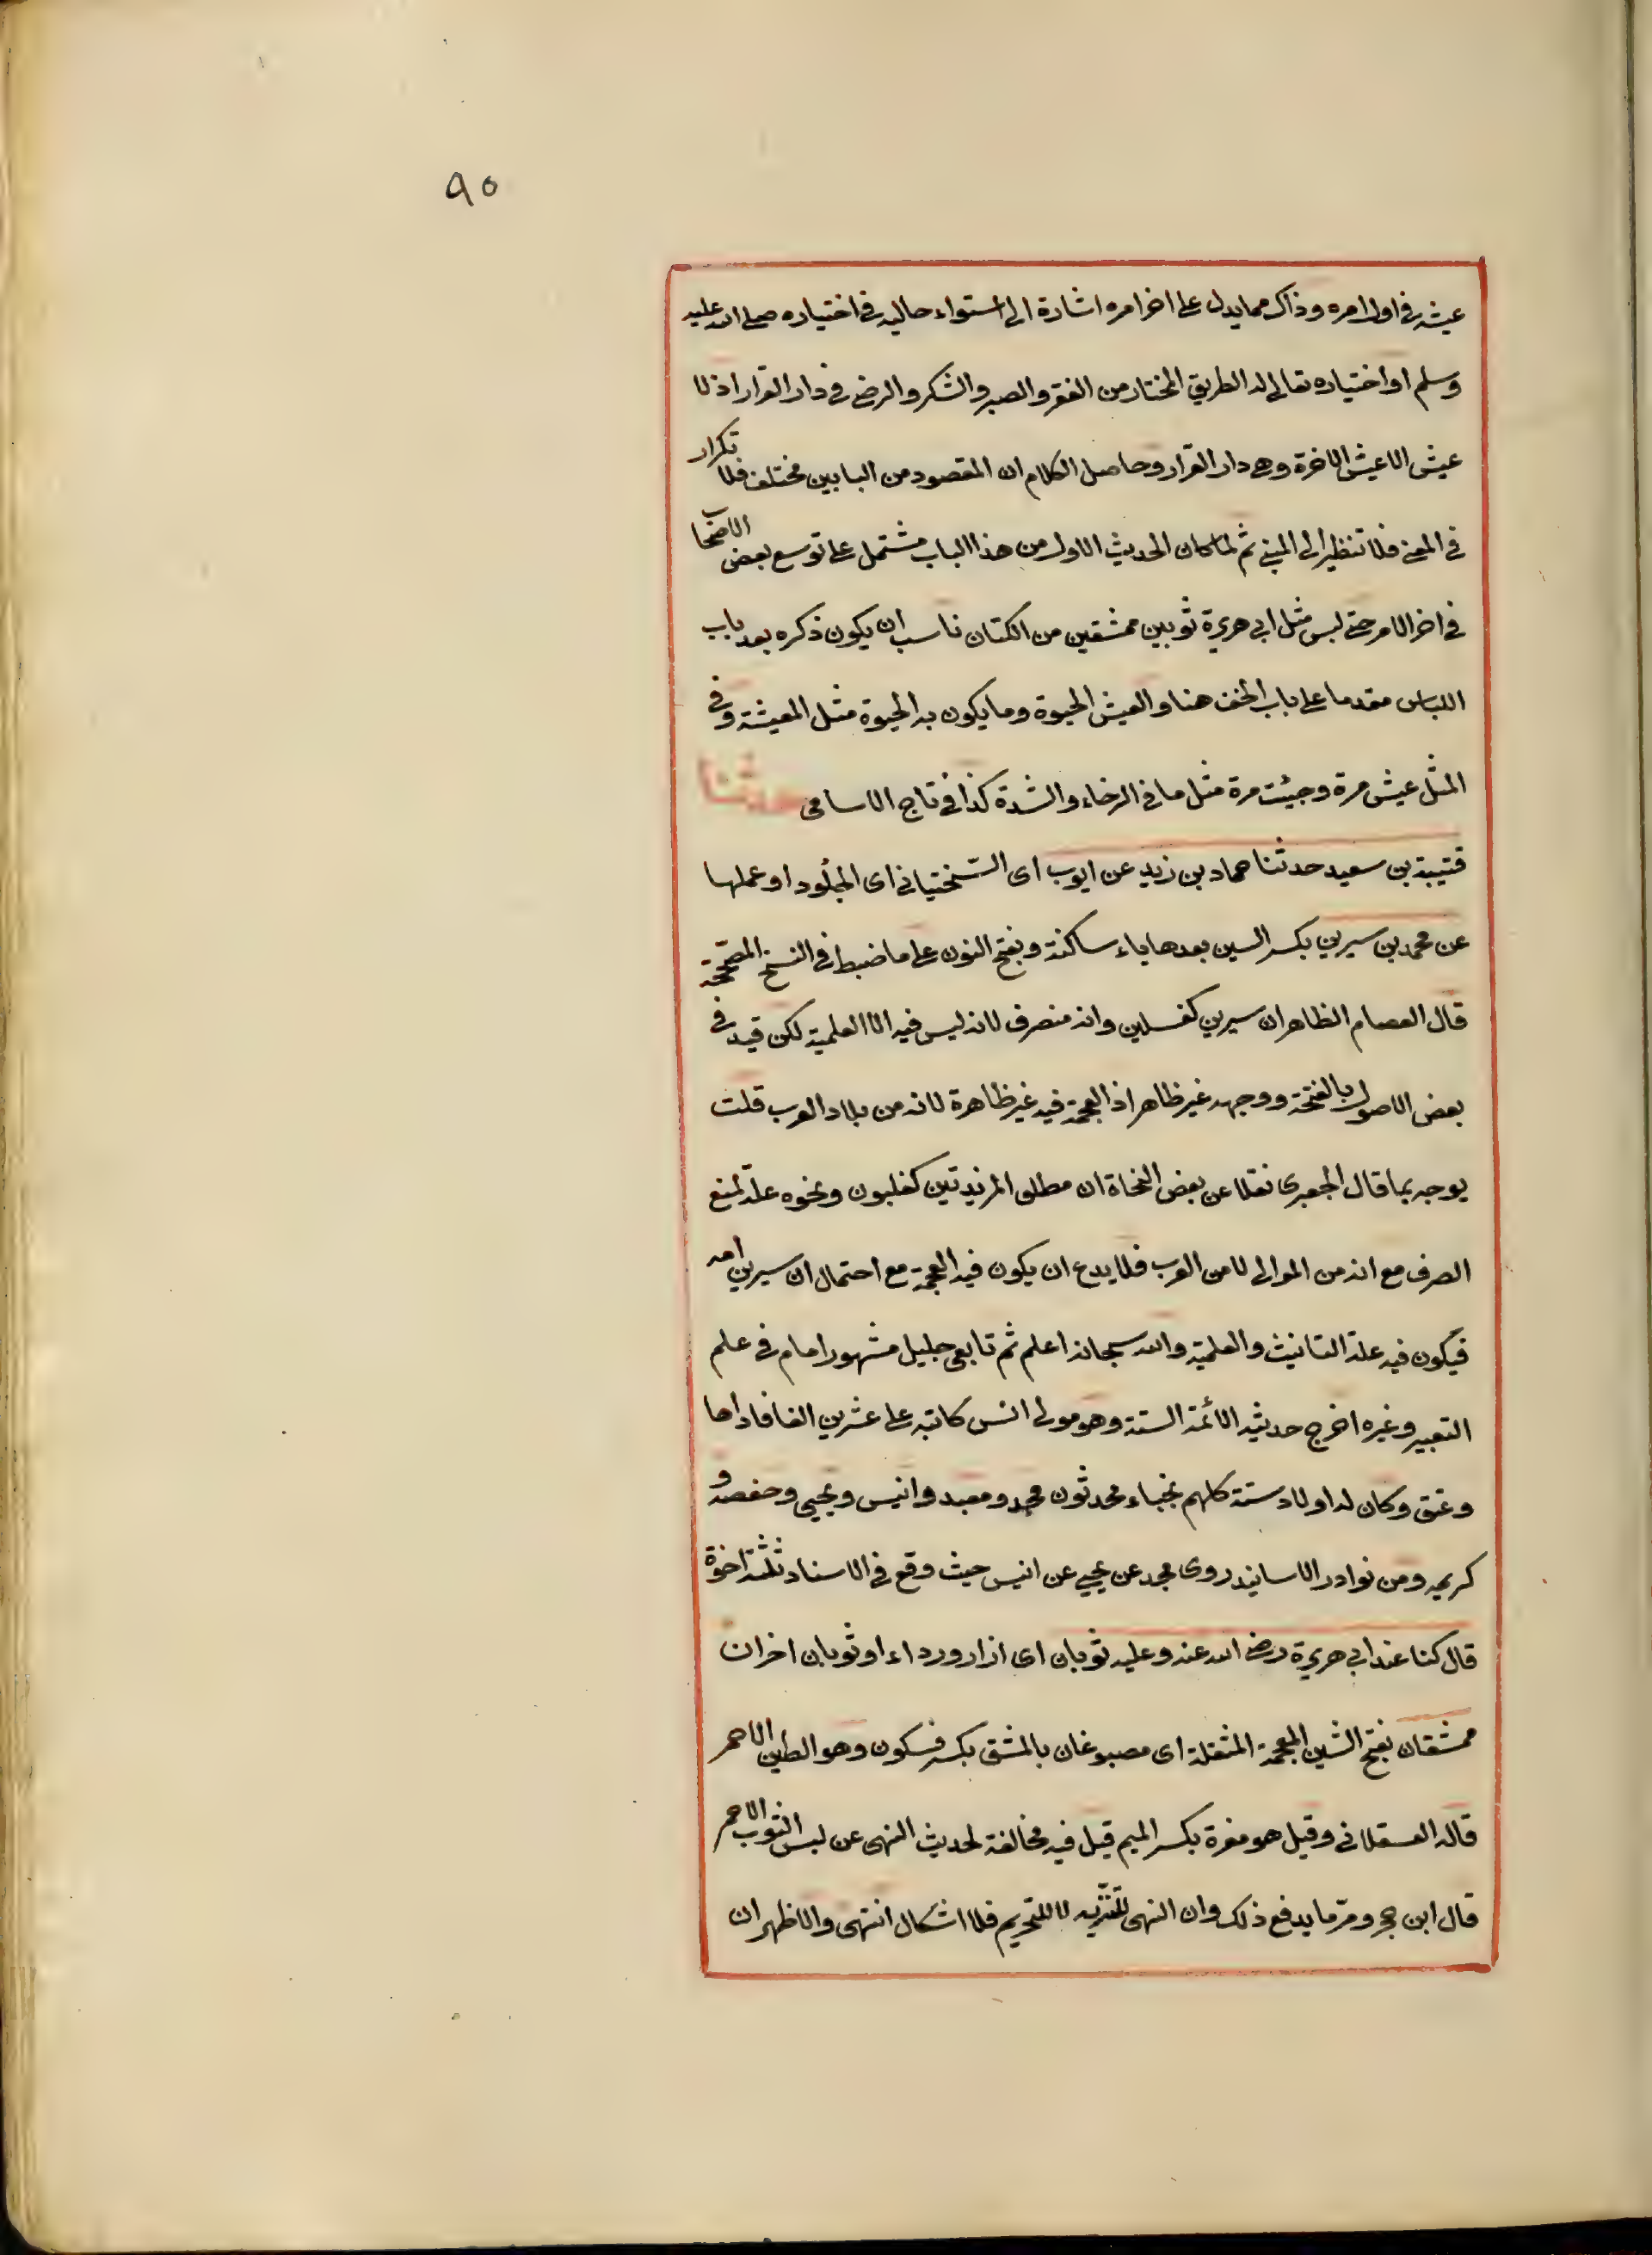 ٩٥
عيشه في اول امره وذاك مما يدل على اخر امره اشارة الى استواء حاليه في اختياره صلى الله عليه
وسلم او اختياره تعالى له الطريق المختار من الفقر والصبر والشكر والرضى في دار القرار اذ لا
عيش الا عيش الاخرة وهي دار القرار وحاصل الكلام ان المقصود من البابين مختلف فلا تكرار
في المعنى فلا تنظير الى المبنى ثم لما كان الحديث الاول من هذا الباب مشتمل على توسع بعض الاصحاب
في اخر الامر حتى لبس مثل ابي هريرة ثوبين ممشقين من الكتان ناسب ان يكون ذكره بعد باب
اللباس مقدما على باب الخف هنا والعيش الحيوة وما يكون به الحيوة مثل المعيشة وفي
المثل عيش مرة وجيئت مرة مثل ما في الرخاء والشدة كذا في تاج الاسامى حدثنا
قتيبة بن سعيد حدثنا حماد بن زيد عن ايوب اى السّختيانى اى الجلود او عملها
عن محمد بن سيرين بكسر السين بعدها ياء ساكنة وبفتح النون على ما ضبط في النسخ المصحّحة
قال العصام الظاهر ان سيرين كغسلين وانه منصرف لانه ليس فيه الا العلمية لكن قيد في
بعض الاصول بالفتحة ووجهه غير ظاهر اذ العجمة فيه غير ظاهرة لانه من بلاد العرب قلت
يوجه بما قال الجعبرى نقلا عن بعض النحاة ان مطلق المزيدتين كغلبون ونحوه علة لمنع
الصرف مع انه من الموالى لا من العرب فلا يدع ان يكون فيه العجمة مع احتمال ان سيرين امه
فيكون فيه علة التانيث والعلمية والله سبحانه اعلم ثم تابعى جليل مشهور امام في علم
التعبير وغيره اخرج حديثه الائمة الستة وهو مولى انس كاتبه على عشرين الفا فاداها
وعتق وكان له اولاد ستة كلهم نجباء محدثون محمد ومعبد وانيس ويحيى وحفصة و
كريمه ومن نوادر الاسانيد روى محمد عن يحيى عن انيس حيث وقع في الاسناد ثلثة اخوة
قال كنا عند ابي هريرة رضى الله عنه وعليه ثوبان اى ازار ورداء او ثوبان اخران
ممشقان بفتح الشين المعجمة المثقلة اى مصبوغان بالمشق بكسر فسكون وهو الطين الاحمر
قاله العسقلانى وقيل هو مغرة بكسر الميم قيل فيه مخالفة لحديث النهى عن لبس الثوب الاحمر
قال ابن حجر ومرّ ما يدفع ذلك وان النهى للتنزيه لا للتحريم فلا اشكال انتهى والاظهر ان